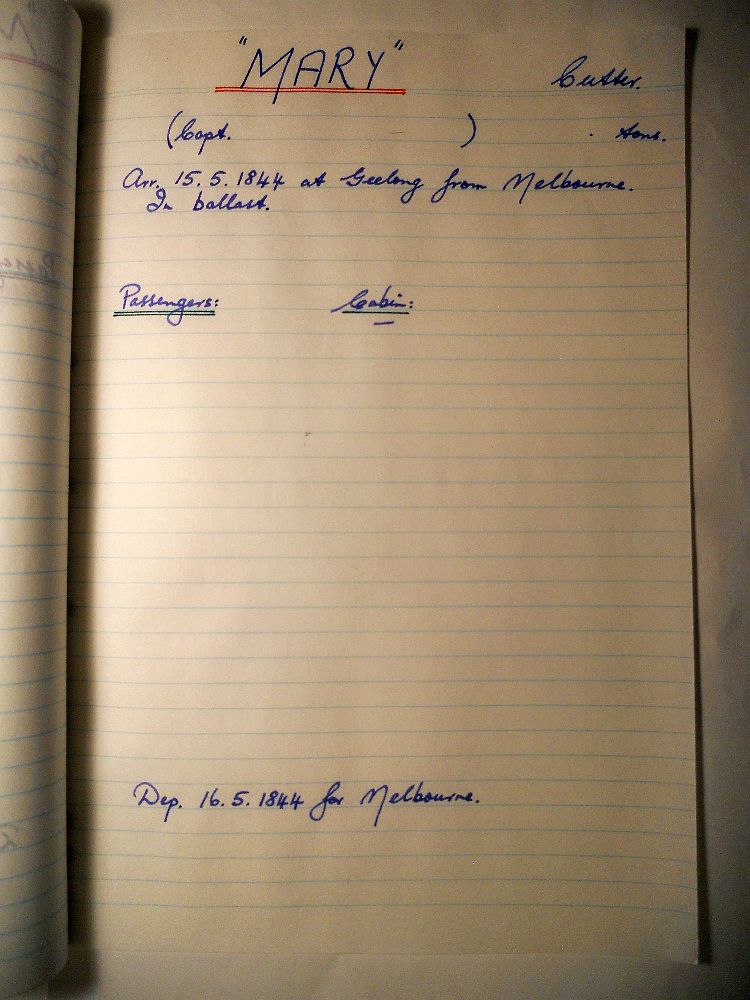 "MARY" Cutter.
(Capt. ) . tons.
Arr. 15.5.1844 at Geelong from Melbourne.
In ballast.
Passengers: Cabin:
—
Dep. 16.5.1844 for Melbourne.